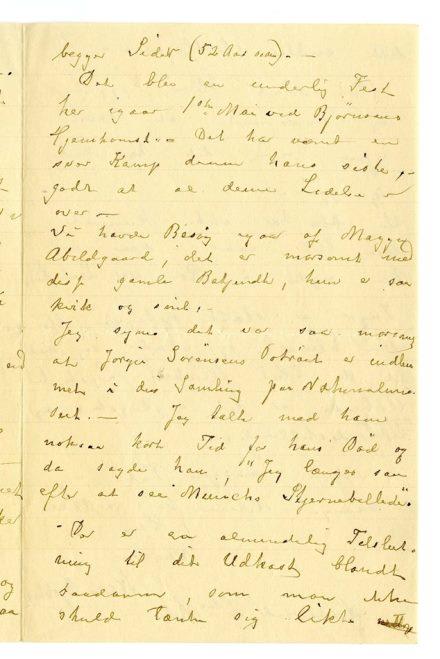 begges Sider (52 Aar siden). —
Det blev en underlig Fest
her igaar 1ste Mai ved Bjørnsons
Hjemkomst. — Det har været en
svær Kamp denne hans sidste, —
godt at al denne Lidelse er
over —
Vi havde Besøg igaar af Maggy
Abildgaard, det er morsomt med
disse gamle Bekjendte, hun er saa
kvik og snil, —
Jeg synes det var saa morsomt
at Jørgen Sørensens Portræt er indlem
met i din Samling paa Nationalmu-
seet. — Jeg talte med ham
noksaa kort Tid før hans Død og
da sagde han, "Jeg længes saa
efter at see Munchs Stjernebillede".
Der er en almindelig Tilslut-
ning til dit Udkast blandt
saadanne, som man ikke
skulde tænke sig likte